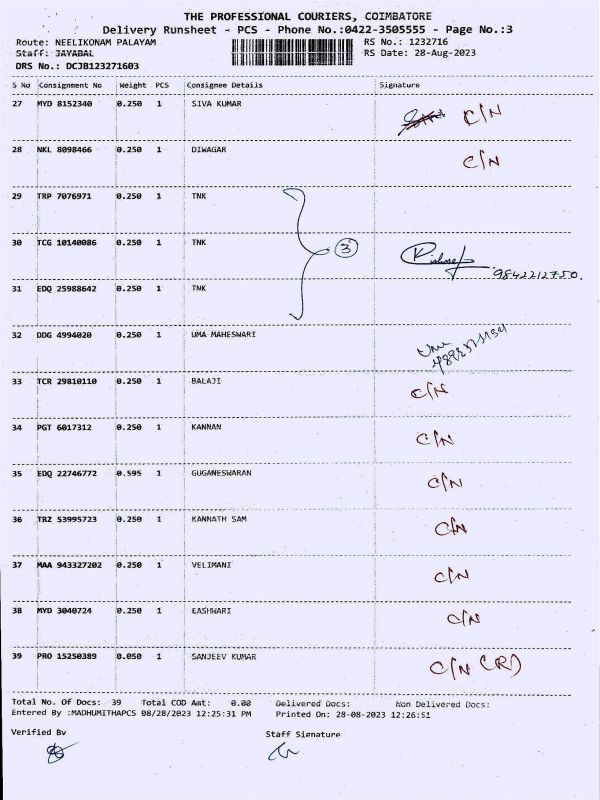 THE PROFESSIONAL COURIERS, COIMBATORE
Delivery Runsheet - PCS - Phone No.:0422-3505555 - Page No.:3
Route: NEELIKONAM PALAYAM RS No.: 1232716
Staff: JAYABAL RS Date: 28-Aug-2023
DRS No.: DCJB123271603
S No Consignment No Weight PCS Consignee Details Signature
27 MYD 8152340 0.250 1 SIVA KUMAR C/N
28 NKL 8098466 0.250 1 DIWAGAR C/N
29 TRP 7076971 0.250 1 TNK
30 TCG 10140086 0.250 1 TNK 3
9842212750.
31 EDQ 25988642 0.250 1 TNK
32 DDG 4994020 0.250 1 UMA MAHESWARI Uma
33 TCR 29810110 0.250 1 BALAJI C/N
34 PGT 6017312 0.250 1 KANNAN C/N
35 EDQ 22746772 0.595 1 GUGANESWARAN C/N
36 TRZ 53995723 0.250 1 KANNATH SAM C/N
37 MAA 943327202 0.250 1 VELIMANI C/N
38 MYD 3040724 0.250 1 EASHWARI C/N
39 PRO 15250389 0.050 1 SANJEEV KUMAR C/N (R)
Total No. Of Docs: 39 Total COD Amt: 0.00 Delivered Docs: Non Delivered Docs:
Entered By :MADHUMITHAPCS 08/28/2023 12:25:31 PM Printed On: 28-08-2023 12:26:51
Verified By Staff Signature